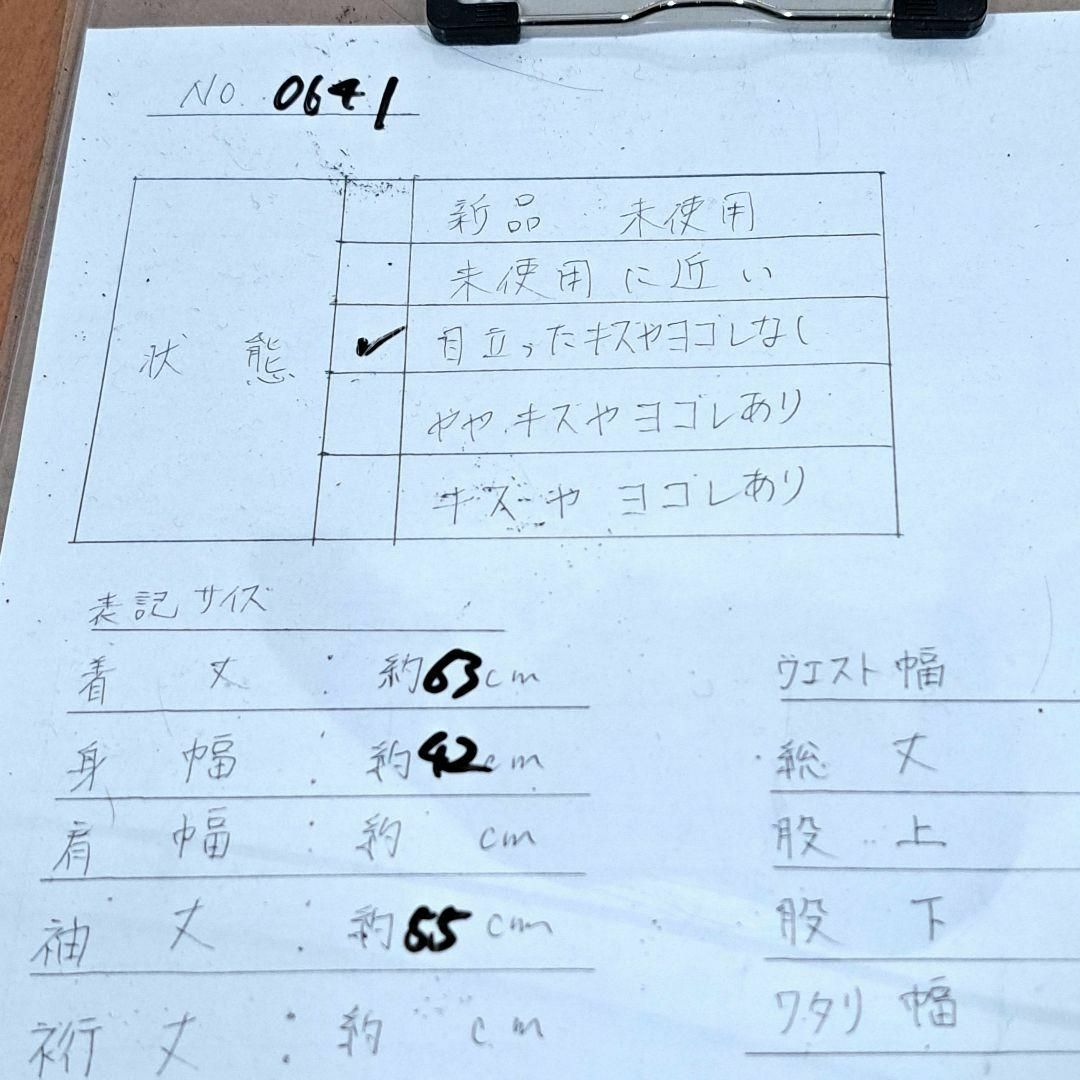 No. 0641
状態
新品 未使用
未使用に近い
✓ 目立ったキズやヨゴレなし
ややキズやヨゴレあり
キズやヨゴレあり
表記サイズ
着丈 : 約63cm
身幅 : 約42cm
肩幅 : 約 cm
袖丈 : 約55cm
裄丈 : 約 cm
ウエスト幅
総丈
股上
股下
ワタリ幅